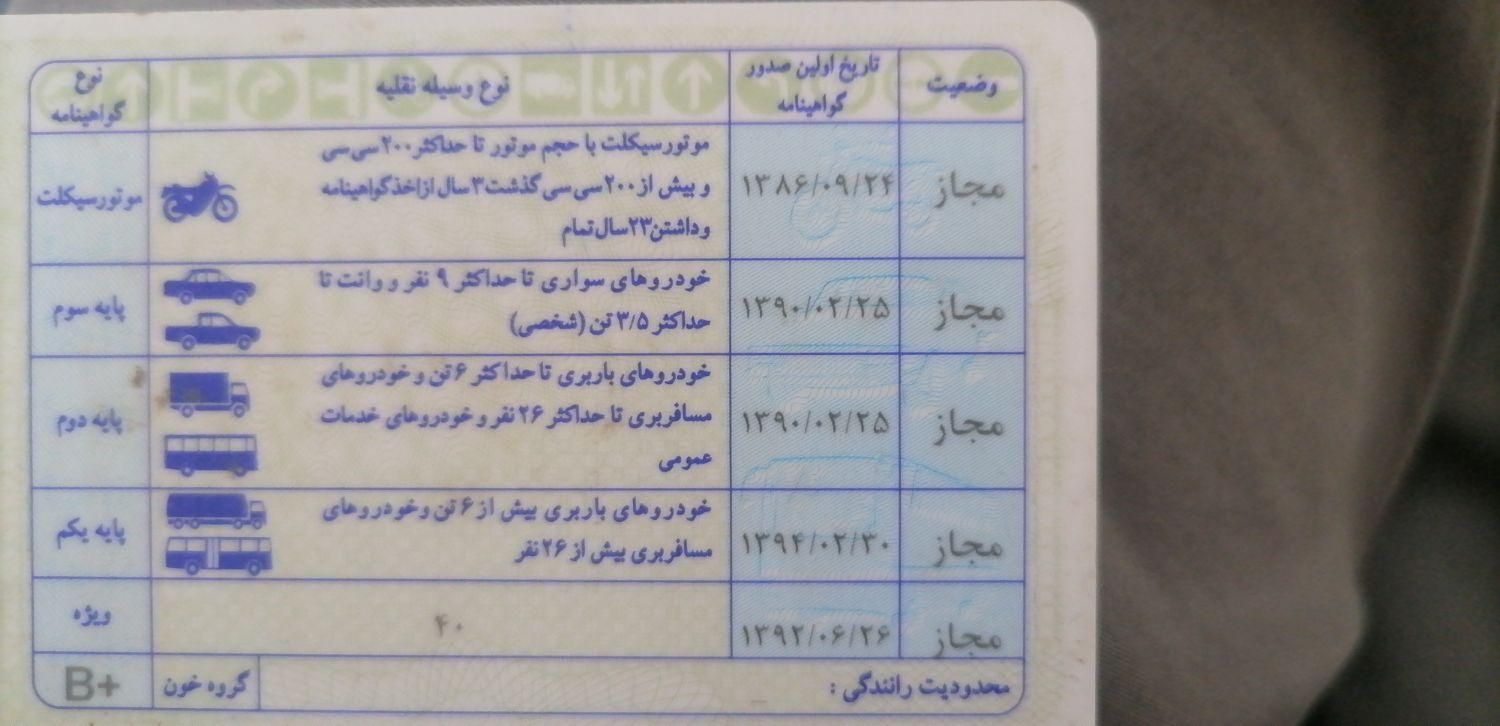 وضعیت
تاریخ اولین صدور
گواهینامه
نوع وسیله نقلیه
نوع
گواهینامه
مجاز
۱۳۸۶/۰۹/۲۴
موتورسیکلت با حجم موتور تا حداکثر ۲۰۰ سی‌سی
و بیش از ۲۰۰ سی سی گذشت ۳ سال از اخذ گواهینامه
و داشتن ۲۳ سال تمام
موتورسیکلت
مجاز
۱۳۹۰/۰۲/۲۵
خودروهای سواری تا حداکثر ۹ نفر و وانت تا
حداکثر ۳/۵ تن (شخصی)
پایه سوم
مجاز
۱۳۹۰/۰۲/۲۵
خودروهای باربری تا حداکثر ۶ تن و خودروهای
مسافربری تا حداکثر ۲۶ نفر و خودروهای خدمات
عمومی
پایه دوم
مجاز
۱۳۹۴/۰۲/۳۰
خودروهای باربری بیش از ۶ تن و خودروهای
مسافربری بیش از ۲۶ نفر
پایه یکم
مجاز
۱۳۹۲/۰۶/۲۶
۴۰
ویژه
محدودیت رانندگی :
گروه خون
B+